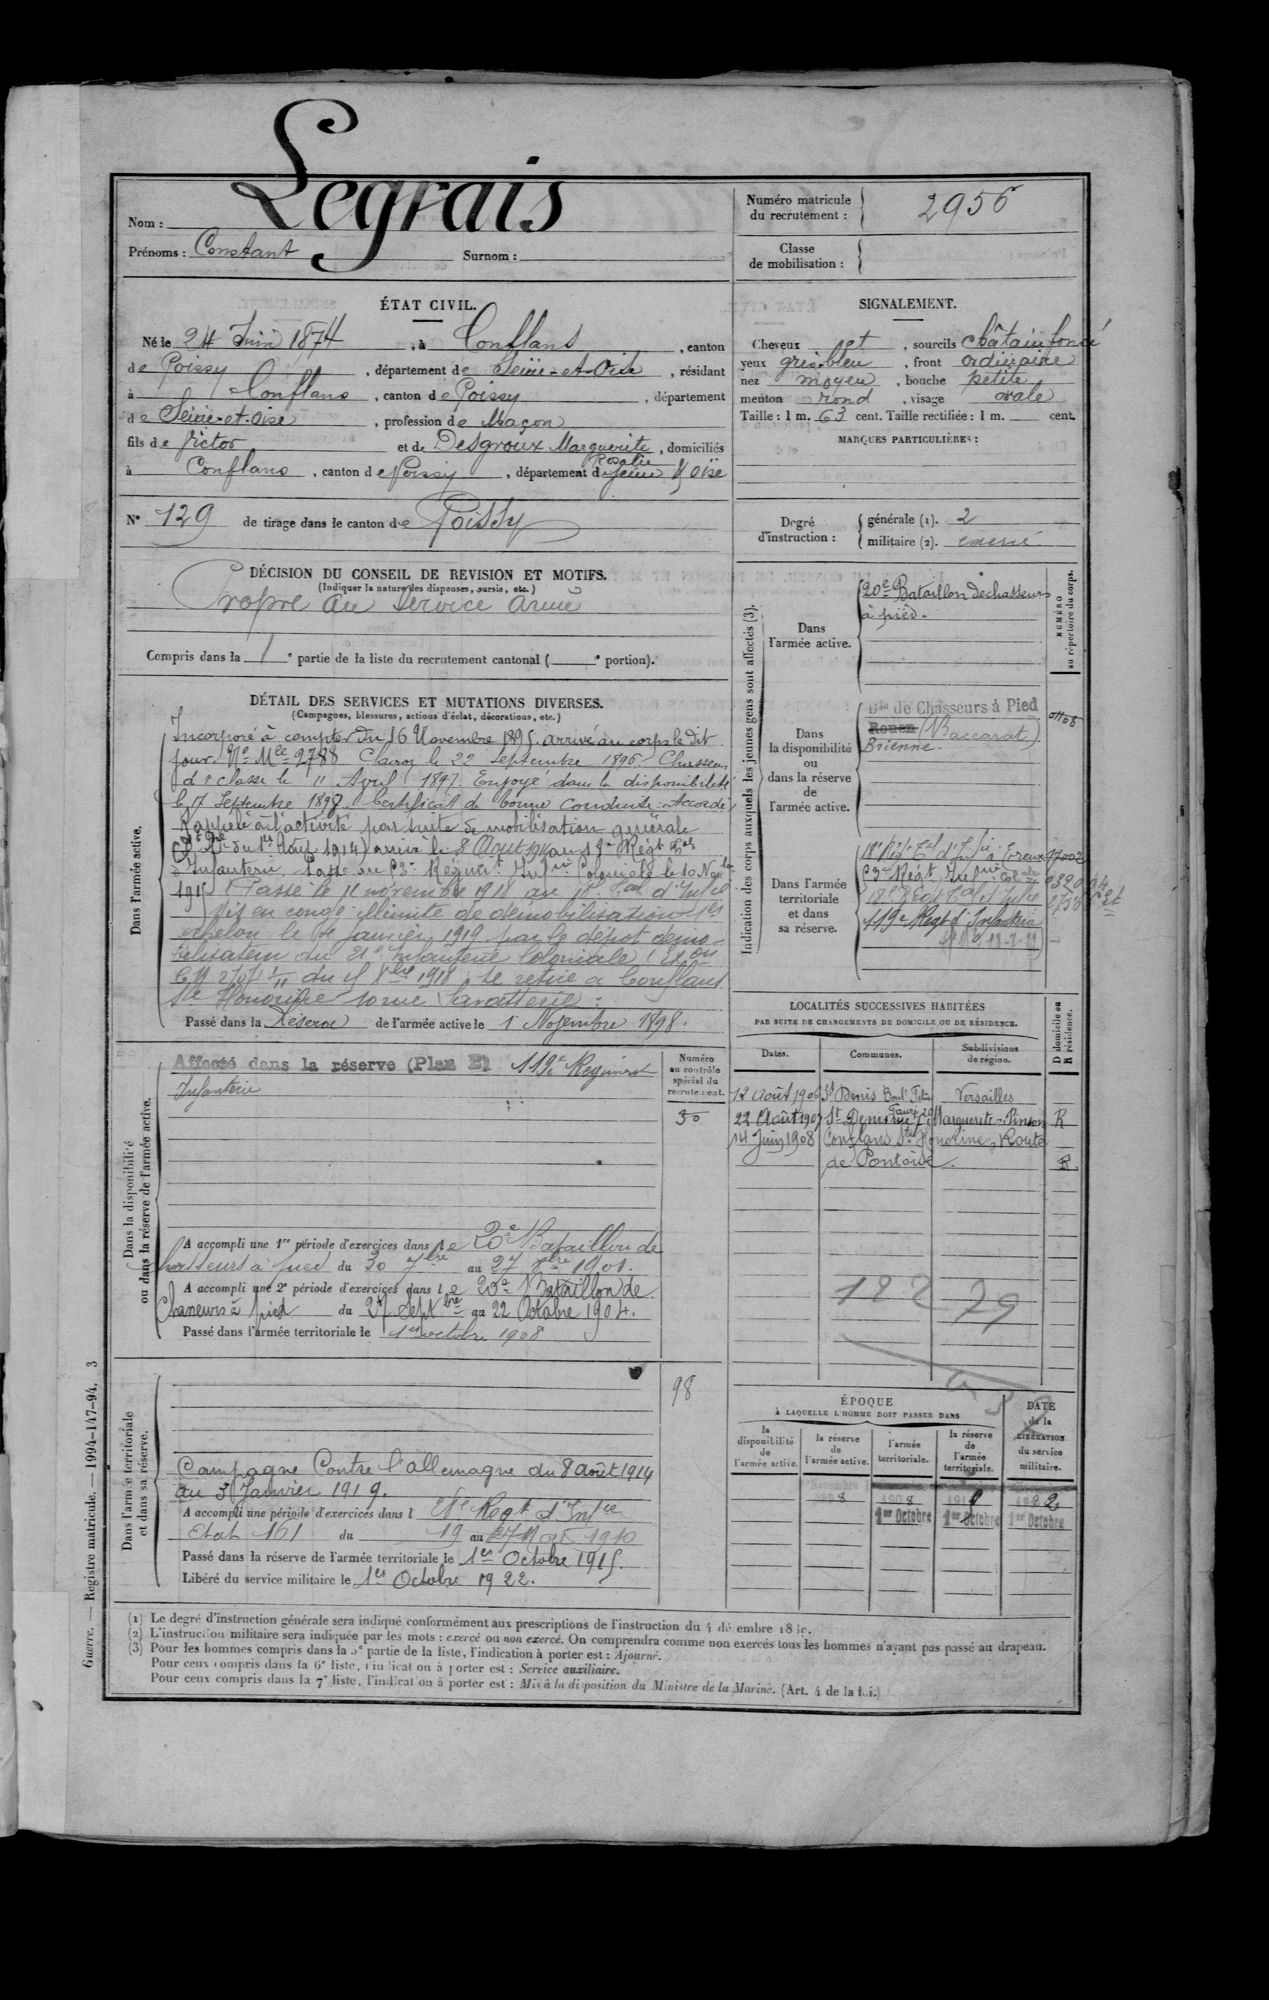 Legrais
Nom :
Prénoms : Constant Surnom :
Numéro matricule du recrutement : 2956
Classe de mobilisation :
ÉTAT CIVIL.
Né le 24 Juin 1874, à Conflans, canton
de Poissy, département de Seine-et-Oise, résidant
à Conflans, canton de Poissy, département
de Seine-et-Oise, profession de Maçon
fils de Victor et de Desgroux Marguerite Rosalie, domiciliés
à Conflans, canton de Poissy, département de Seine & Oise
N° 129 de tirage dans le canton de Poissy
SIGNALEMENT.
Cheveux et, sourcils châtain foncé
yeux gris bleu, front ordinaire
nez moyen, bouche petite
menton rond, visage ovale
Taille : 1 m. 63 cent. Taille rectifiée : 1 m. cent.
MARQUES PARTICULIÈRES :
Degré d'instruction :
générale (1). 2
militaire (2). exercé
DÉCISION DU CONSEIL DE REVISION ET MOTIFS.
(Indiquer la nature des dispenses, sursis, etc.)
Propre au service armé
Compris dans la 1e partie de la liste du recrutement cantonal ( e portion).
DÉTAIL DES SERVICES ET MUTATIONS DIVERSES.
(Campagnes, blessures, actions d'éclat, décorations, etc.)
Dans l'armée active.
Incorporé à compter du 16 Novembre 1895. arrivé au corps le dit
jour N° Mle 2788 Clairon le 22 Septembre 1896. Chasseur
de 1e classe le 11 Avril 1897. Envoyé dans la disponibilité
le 17 Septembre 1898. Certificat de bonne conduite : Accordé
Rappelé à l'activité par suite de mobilisation générale
du 1er Août 1914) arrivé le 8 Août 1914 au 18e Régt Tal
d'Infanterie. Passé au 53e Régimt Infrie Coloniale le 10 Nov
1915 Passé le 11 novembre 1918 au 18e Tal d'Infie
Mis en congé illimité de démobilisation 1er
échelon le 3 Janvier 1919 par le dépôt démo-
bilisateur du 21e Infanterie Coloniale
du 15 Xbre 1918 se retire à Conflans
Ste Honorine 10 rue Savatterie :
Passé dans la Réserve de l'armée active le 1 Novembre 1898.
Indication des corps auxquels les jeunes gens sont affectés (3).
NUMÉRO au répertoire du corps.
Dans l'armée active.
20e Bataillon de chasseurs
à pied.
Dans la disponibilité ou dans la réserve de l'armée active.
Bon de Chasseurs à Pied
Rouen (Baccarat)
Brienne
Dans l'armée territoriale et dans sa réserve.
18e Régt Tal d'Infie à Evreux 17002
53e Régt Infie Colle
18e Régt Tal d'Infie
119e Regt d'Infanterie
LOCALITÉS SUCCESSIVES HABITÉES
PAR SUITE DE CHANGEMENTS DE DOMICILE OU DE RÉSIDENCE.
Dates. Communes. Subdivisions de région. D domicile ou R résidence.
12 Août 1906 St Denis Versailles
22 Août 1907 St Denis Marguerite-Pinson R
14 Juin 1908 Conflans Ste Honorine, Route
de Pontoise. R
122 79
Dans la disponibilité ou dans la réserve de l'armée active.
Numéro au contrôle spécial du recrutement.
Affecté dans la réserve (Plan E) 119e Régiment
Infanterie
30
A accompli une 1re période d'exercices dans le 20e Bataillon de
chasseurs à pied du 30 7bre au 27 1901.
A accompli une 2e période d'exercices dans le 20e Bataillon de
Chasseurs à pied du 27 Septbre au 22 Octobre 1904.
Passé dans l'armée territoriale le 1er octobre 1908
Dans l'armée territoriale et dans sa réserve.
98
Campagne Contre l'allemagne du 8 août 1914
au 3 Janvier 1919.
A accompli une période d'exercices dans l 18e Regt d'Infie
Etat 161 du 19 au 27 1910
Passé dans la réserve de l'armée territoriale le 1er Octobre 1915.
Libéré du service militaire le 1er Octobre 1922.
ÉPOQUE
À LAQUELLE L'HOMME DOIT PASSER DANS
la disponibilité de l'armée active. la réserve de l'armée active. l'armée territoriale. la réserve de l'armée territoriale.
DATE de la LIBÉRATION du service militaire.
1er Octobre 1er Octobre 1er Octobre
(1) Le degré d'instruction générale sera indiqué conformément aux prescriptions de l'instruction du 4 décembre
(2) L'instruction militaire sera indiquée par les mots : exercé ou non exercé. On comprendra comme non exercés tous les hommes n'ayant pas passé au drapeau.
(3) Pour les hommes compris dans la 5e partie de la liste, l'indication à porter est : Ajourné.
Pour ceux compris dans la 6e liste, l'indication à porter est : Service auxiliaire.
Pour ceux compris dans la 7e liste, l'indication à porter est : Mis à la disposition du Ministre de la Marine. (Art. 4 de la loi.)
Guerre. — Registre matricule. — 1994-147-94. 3